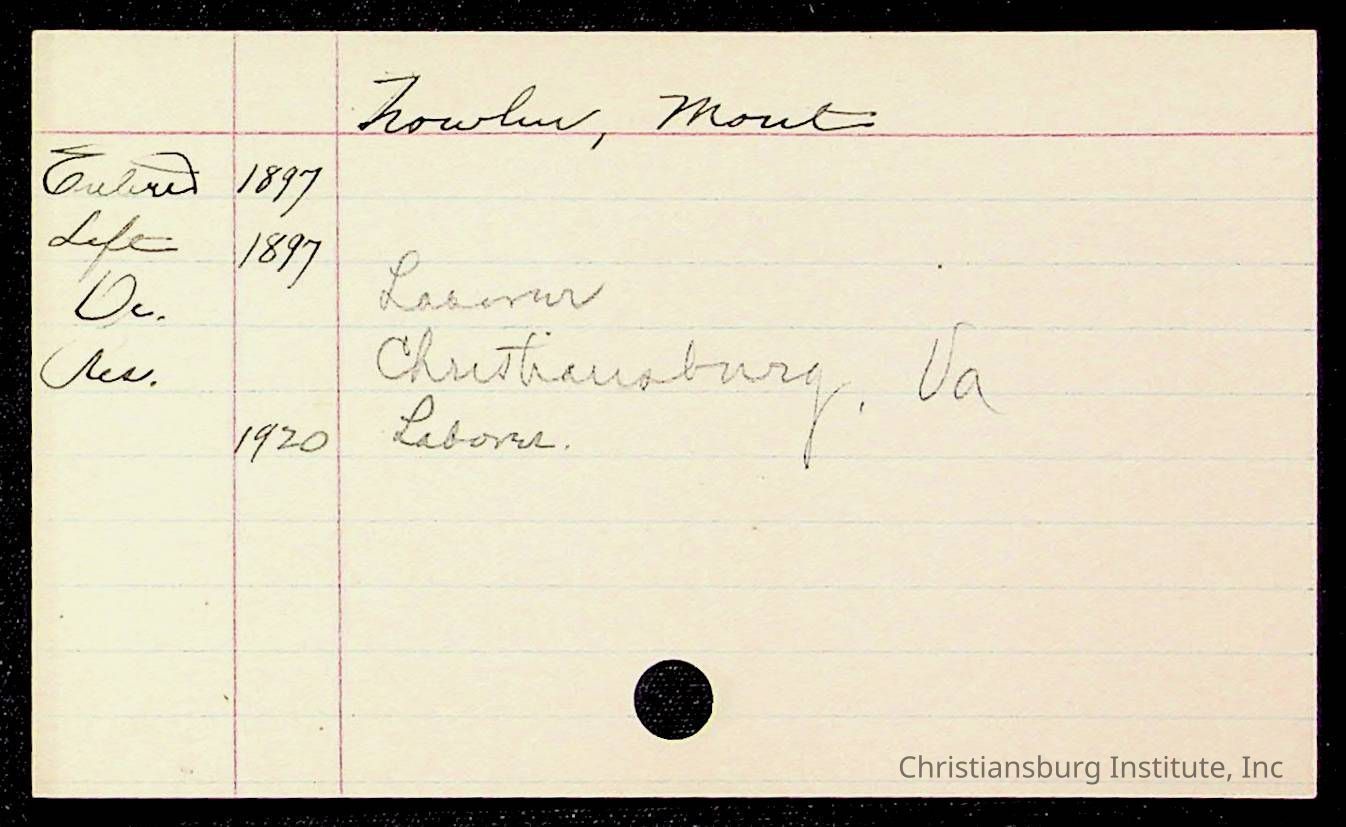 Mont
Entered 1897
Left 1897
Oc. Laborer
Res. Christiansburg, Va
1920 Laborer.
Christiansburg Institute, Inc